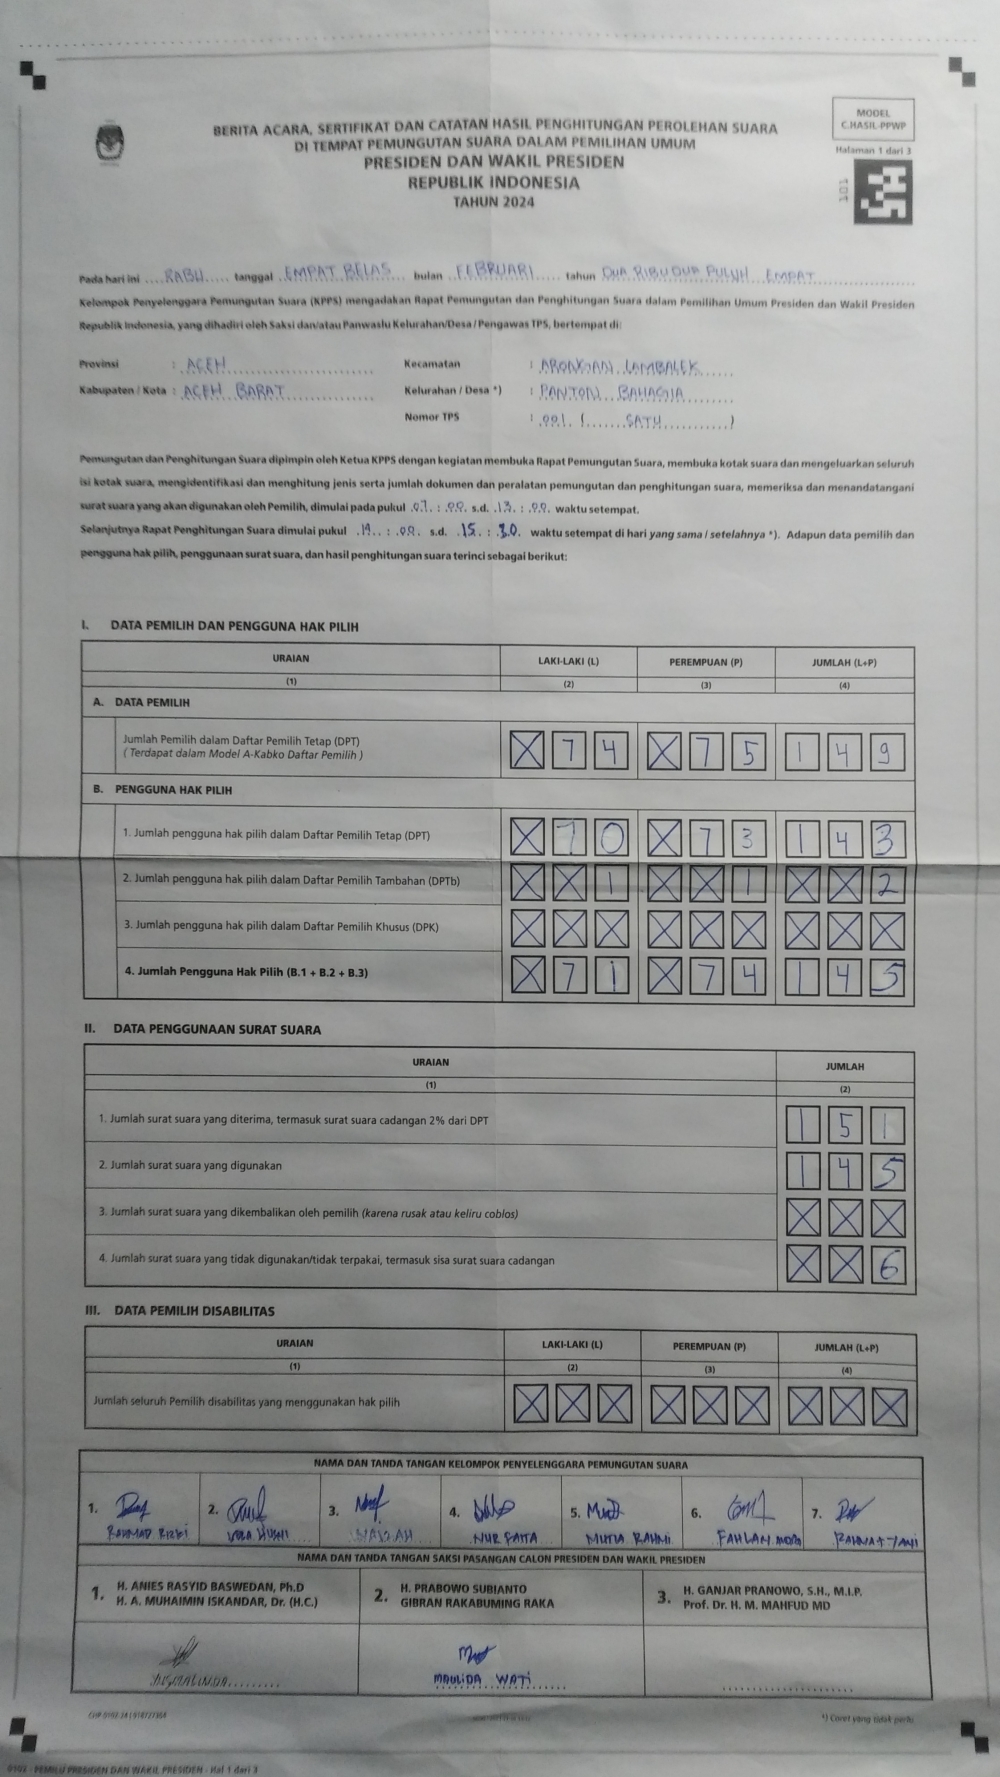 BERITA ACARA, SERTIFIKAT DAN CATATAN HASIL PENGHITUNGAN PEROLEHAN SUARA
DI TEMPAT PEMUNGUTAN SUARA DALAM PEMILIHAN UMUM
PRESIDEN DAN WAKIL PRESIDEN
REPUBLIK INDONESIA
TAHUN 2024
MODEL
C.HASIL-PPWP
Halaman 1 dari 3
101
Pada hari ini RABU tanggal EMPAT BELAS bulan FEBRUARI tahun DUA RIBU DUA PULUH EMPAT
Kelompok Penyelenggara Pemungutan Suara (KPPS) mengadakan Rapat Pemungutan dan Penghitungan Suara dalam Pemilihan Umum Presiden dan Wakil Presiden
Republik Indonesia, yang dihadiri oleh Saksi dan/atau Panwaslu Kelurahan/Desa / Pengawas TPS, bertempat di:
Provinsi : ACEH Kecamatan : ARONGAN LAMBALEK
Kabupaten / Kota : ACEH BARAT Kelurahan / Desa *) : PANTON BAHAGIA
Nomor TPS : 001 (......SATU...........)
Pemungutan dan Penghitungan Suara dipimpin oleh Ketua KPPS dengan kegiatan membuka Rapat Pemungutan Suara, membuka kotak suara dan mengeluarkan seluruh
isi kotak suara, mengidentifikasi dan menghitung jenis serta jumlah dokumen dan peralatan pemungutan dan penghitungan suara, memeriksa dan menandatangani
surat suara yang akan digunakan oleh Pemilih, dimulai pada pukul 07 : 00 s.d. 13 : 00 waktu setempat.
Selanjutnya Rapat Penghitungan Suara dimulai pukul 14 : 00 s.d. 15 : 30 waktu setempat di hari yang sama / setelahnya *). Adapun data pemilih dan
pengguna hak pilih, penggunaan surat suara, dan hasil penghitungan suara terinci sebagai berikut:
I. DATA PEMILIH DAN PENGGUNA HAK PILIH
URAIAN LAKI-LAKI (L) PEREMPUAN (P) JUMLAH (L+P)
(1) (2) (3) (4)
A. DATA PEMILIH
Jumlah Pemilih dalam Daftar Pemilih Tetap (DPT) X 7 4 X 7 5 1 4 9
( Terdapat dalam Model A-Kabko Daftar Pemilih )
B. PENGGUNA HAK PILIH
1. Jumlah pengguna hak pilih dalam Daftar Pemilih Tetap (DPT) X 7 0 X 7 3 1 4 3
2. Jumlah pengguna hak pilih dalam Daftar Pemilih Tambahan (DPTb) X X 1 X X 1 X X 2
3. Jumlah pengguna hak pilih dalam Daftar Pemilih Khusus (DPK) X X X X X X X X X
4. Jumlah Pengguna Hak Pilih (B.1 + B.2 + B.3) X 7 1 X 7 4 1 4 5
II. DATA PENGGUNAAN SURAT SUARA
URAIAN JUMLAH
(1) (2)
1. Jumlah surat suara yang diterima, termasuk surat suara cadangan 2% dari DPT 1 5 1
2. Jumlah surat suara yang digunakan 1 4 5
3. Jumlah surat suara yang dikembalikan oleh pemilih (karena rusak atau keliru coblos) X X X
4. Jumlah surat suara yang tidak digunakan/tidak terpakai, termasuk sisa surat suara cadangan X X 6
III. DATA PEMILIH DISABILITAS
URAIAN LAKI-LAKI (L) PEREMPUAN (P) JUMLAH (L+P)
(1) (2) (3) (4)
Jumlah seluruh Pemilih disabilitas yang menggunakan hak pilih X X X X X X X X X
NAMA DAN TANDA TANGAN KELOMPOK PENYELENGGARA PEMUNGUTAN SUARA
1. 2. 3. 4. 5. 6. 7.
RAHMAD RIZKI NUR MUTIA RAHMI FAHLAN
NAMA DAN TANDA TANGAN SAKSI PASANGAN CALON PRESIDEN DAN WAKIL PRESIDEN
1. H. ANIES RASYID BASWEDAN, Ph.D
H. A. MUHAIMIN ISKANDAR, Dr. (H.C.)
2. H. PRABOWO SUBIANTO
GIBRAN RAKABUMING RAKA
3. H. GANJAR PRANOWO, S.H., M.I.P.
Prof. Dr. H. M. MAHFUD MD
MAULIDA WATI
*) Coret yang tidak perlu
0103 - PEMILU PRESIDEN DAN WAKIL PRESIDEN - Hal 1 dari 3